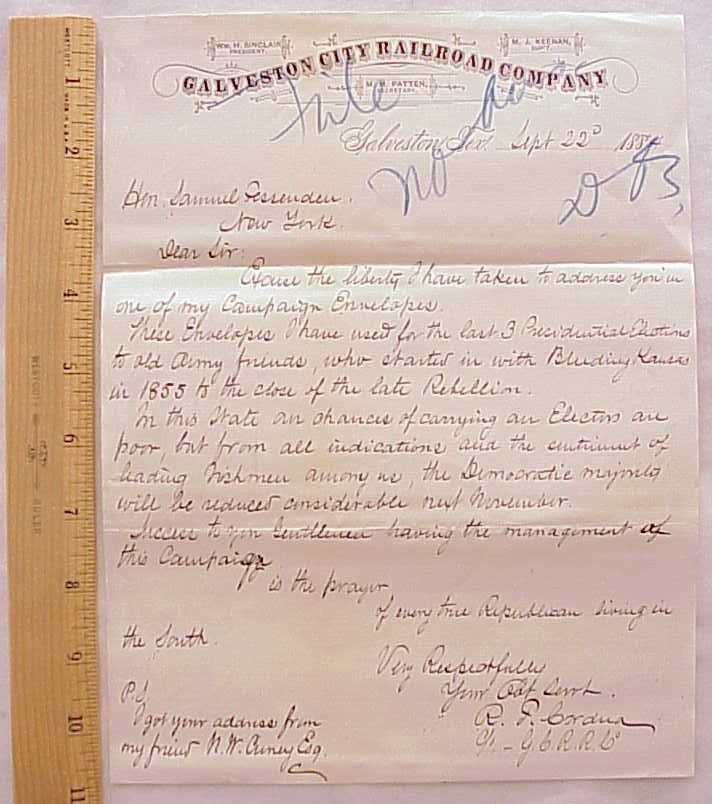 WM. H. SINCLAIR, PRESIDENT.
M. J. KEENAN, SUPT.
GALVESTON CITY RAILROAD COMPANY
M. M. PATTEN, SECRETARY.
file
no
Galveston, Tex. Sept 22d 1884
Hon. Samuel Fessenden.
New York.
Dear Sir:
Excuse the liberty I have taken to address you in
one of my Campaign Envelopes.
These Envelopes I have used for the last 3 Presidential Elections
to old Army friends, who started in with Bleeding Kansas
in 1855 to the close of the late Rebellion.
In this State our chances of carrying our Electors are
poor, but from all indications and the sentiment of
leading Irishmen among us, the Democratic majority
will be reduced considerable next November.
Success to you Gentlemen having the management of
this Campaign
is the prayer
of every true Republican living in
the South.
Very Respectfully
Your Obt Servt.
R. F.
G. C. R. R. Co
P.S.
I got your address from
my friend N. W. Cuney Esq.
1
2
3
4
5
6
7
8
9
10
11